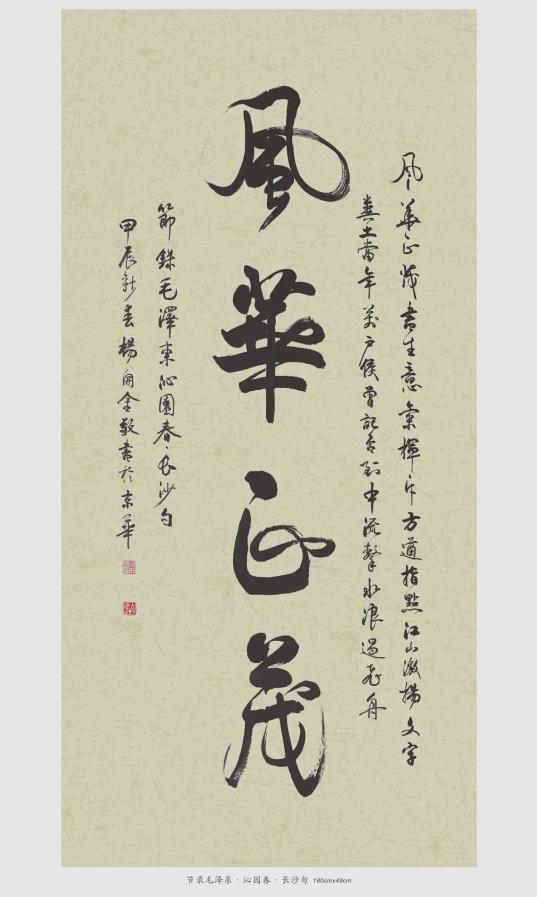 風華正茂書生意氣揮斥方遒指點江山激揚文字
糞土當年萬戶侯曾記否到中流擊水浪遏飛舟
風華正茂
節錄毛澤東沁園春·長沙句
甲辰新春楊金敬書於京華
节录毛泽东·沁园春·长沙句 180cmx49cm